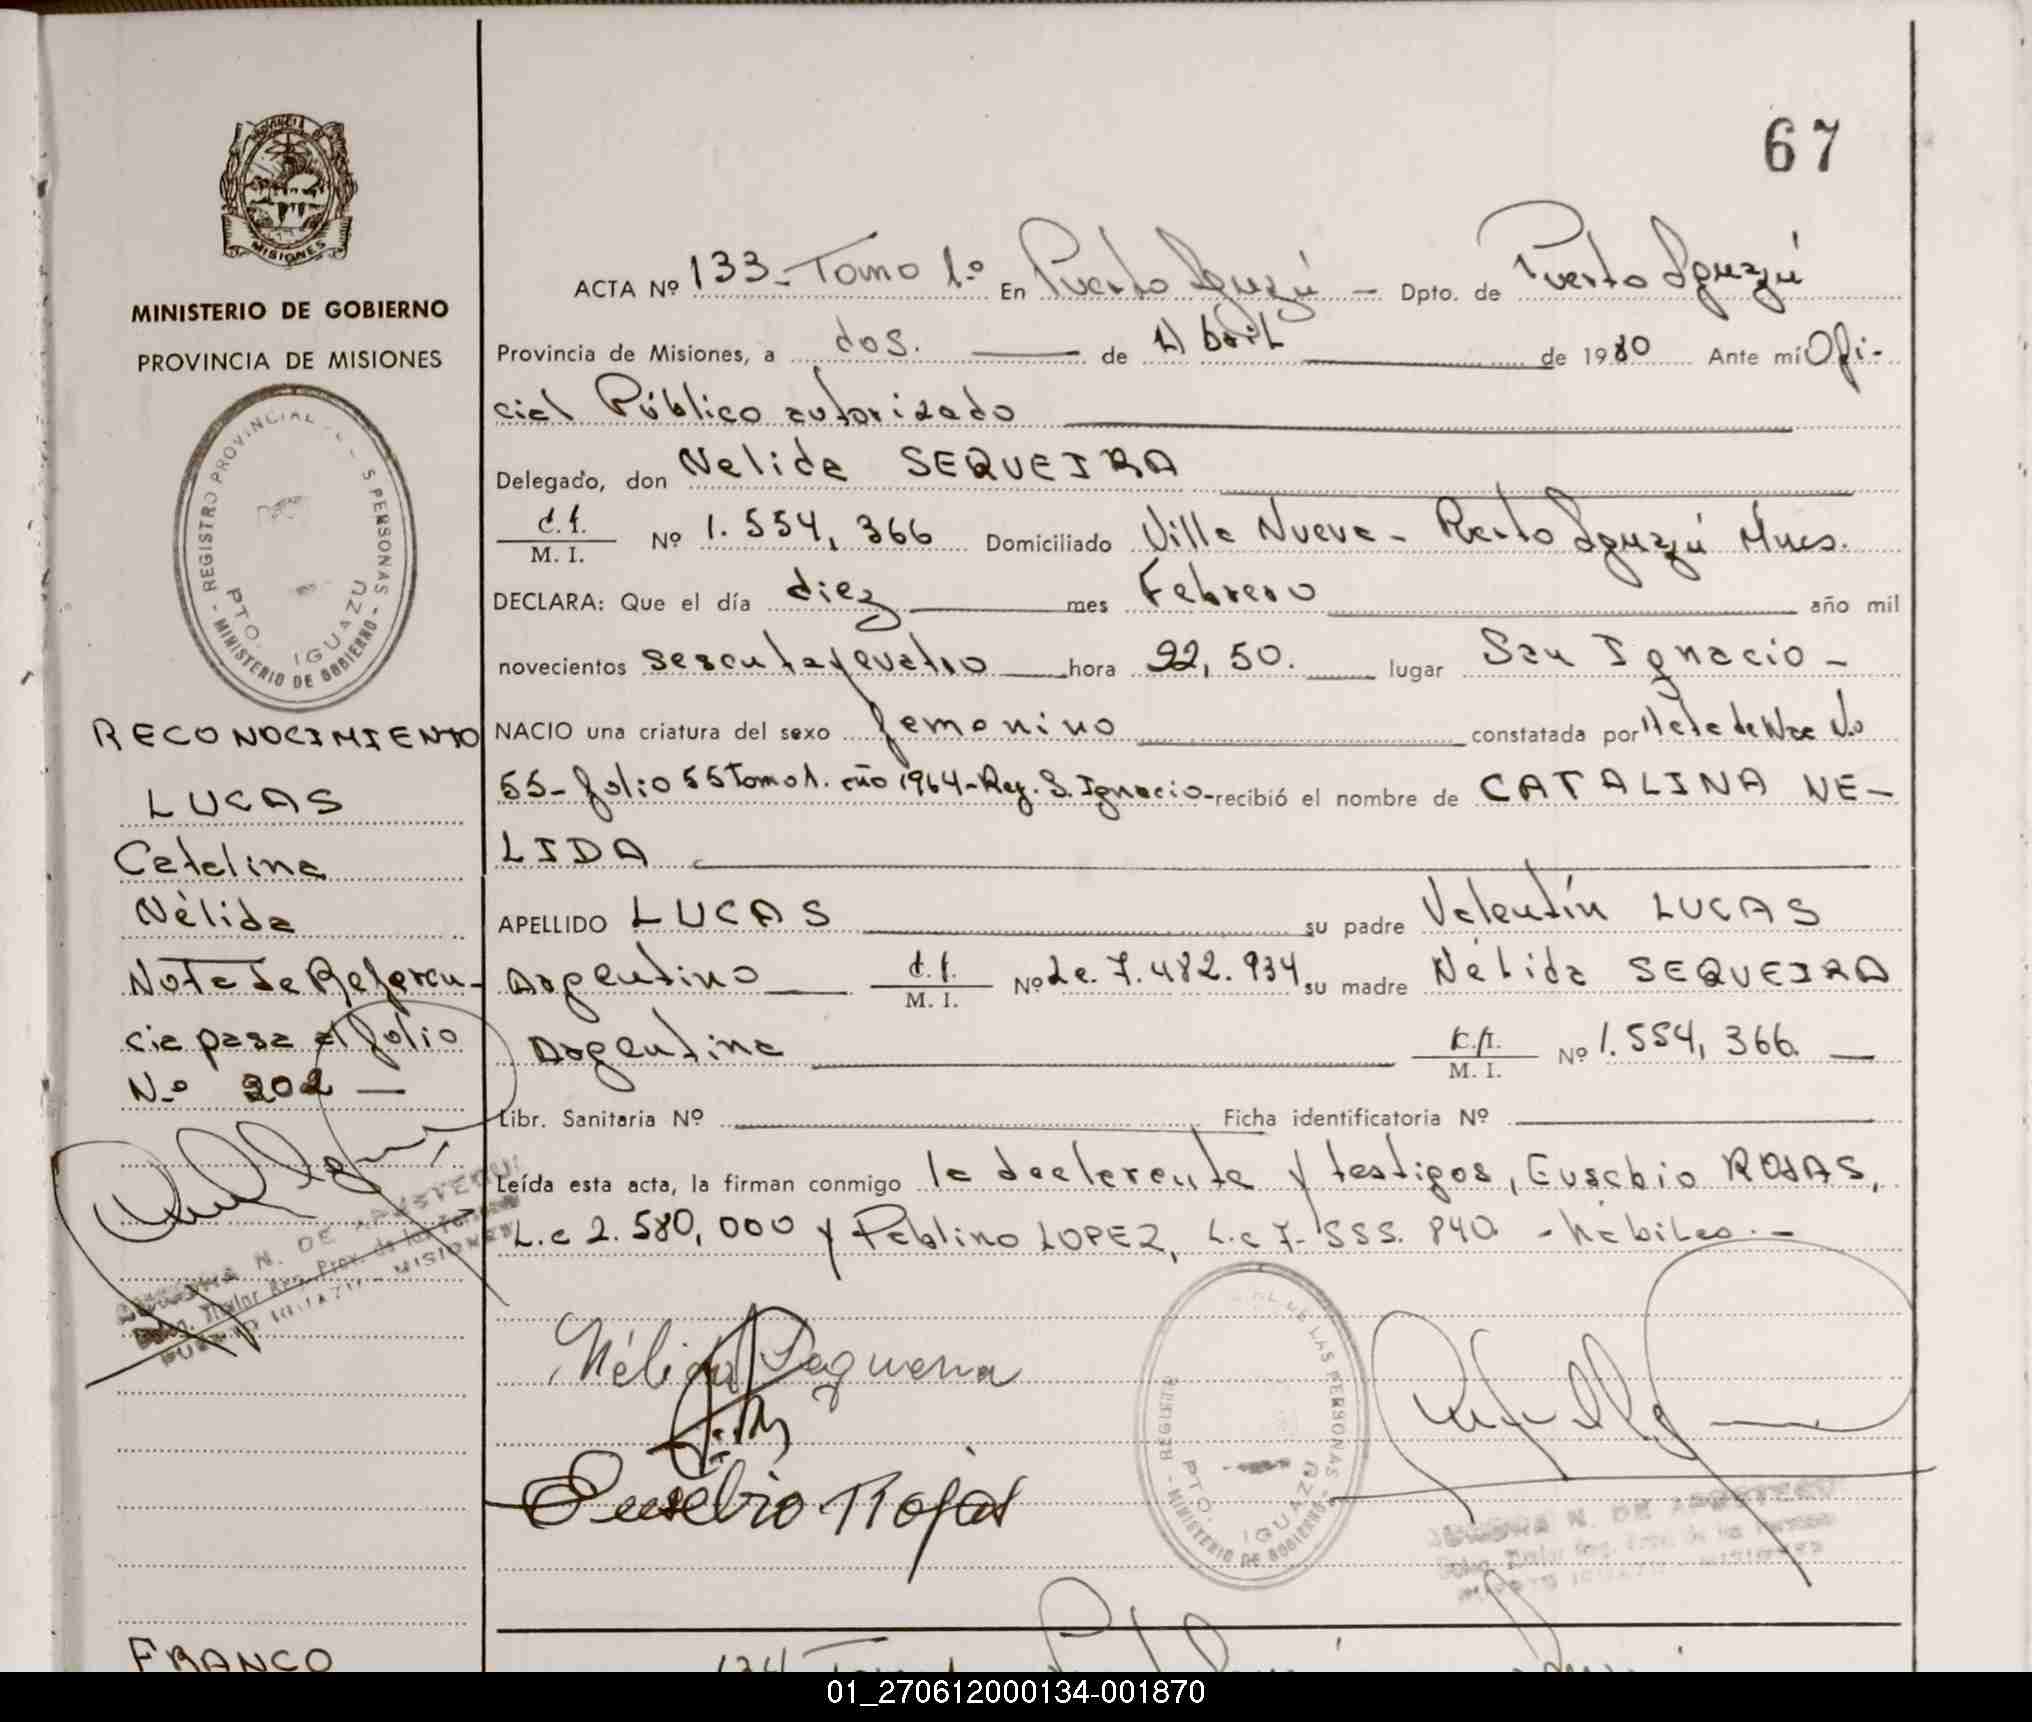 67
PROVINCIA DE
MISIONES
MINISTERIO DE GOBIERNO
PROVINCIA DE MISIONES
REGISTRO PROVINCIAL PERSONAS
PTO. IGUAZU
- MINISTERIO DE GOBIERNO -
RECONOCIMIENTO
LUCAS
Catalina
Nélida
Nota de Referen-
cia pasa al folio
N.o 202 —
N. DE
Titular Reg. Prov. de las Personas
PUERTO IGUAZU - MISIONES
FRANCO
ACTA Nº 133 - Tomo 1.o En Puerto Iguazú - Dpto. de Puerto Iguazú
Provincia de Misiones, a dos. — de Abril — de 1980 Ante mí Ofi-
cial Público autorizado —
Delegado, don Nelida SEQUEIRA —
C.I.
M. I. Nº 1.554,366 Domiciliado Villa Nueva - Puerto Iguazú Mnes.
DECLARA: Que el día diez — mes Febrero — año mil
novecientos sesenta y cuatro — hora 22,50. — lugar San Ignacio -
NACIO una criatura del sexo femenino — constatada por Acta de Nac N.o
55 - folio 55 Tomo 1. año 1964 - Reg. S. Ignacio - recibió el nombre de CATALINA NE-
LIDA —
APELLIDO LUCAS — su padre Valentín LUCAS
Argentino — C.I.
M. I. Nº Le. 7.482.934 su madre Nélida SEQUEIRA
Argentina — C.I.
M. I. Nº 1.554,366 —
Libr. Sanitaria Nº — Ficha identificatoria Nº —
Leída esta acta, la firman conmigo la declarente y testigos, Eusebio ROJAS,
L.e 2.580,000 y Pablino LOPEZ, L.e 7.555.840 - hábiles. -
Nélida Sequeira
Eusebio Rojas
DE LAS PERSONAS
PTO. IGUAZU
- MINISTERIO DE GOBIERNO -
N. DE
134
01_270612000134-001870